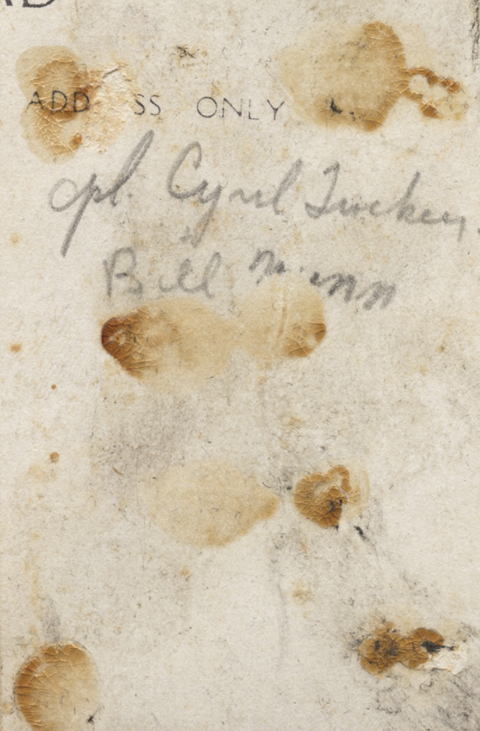 ADD SS ONLY
Cpl. Cyril Tucker.
Bill